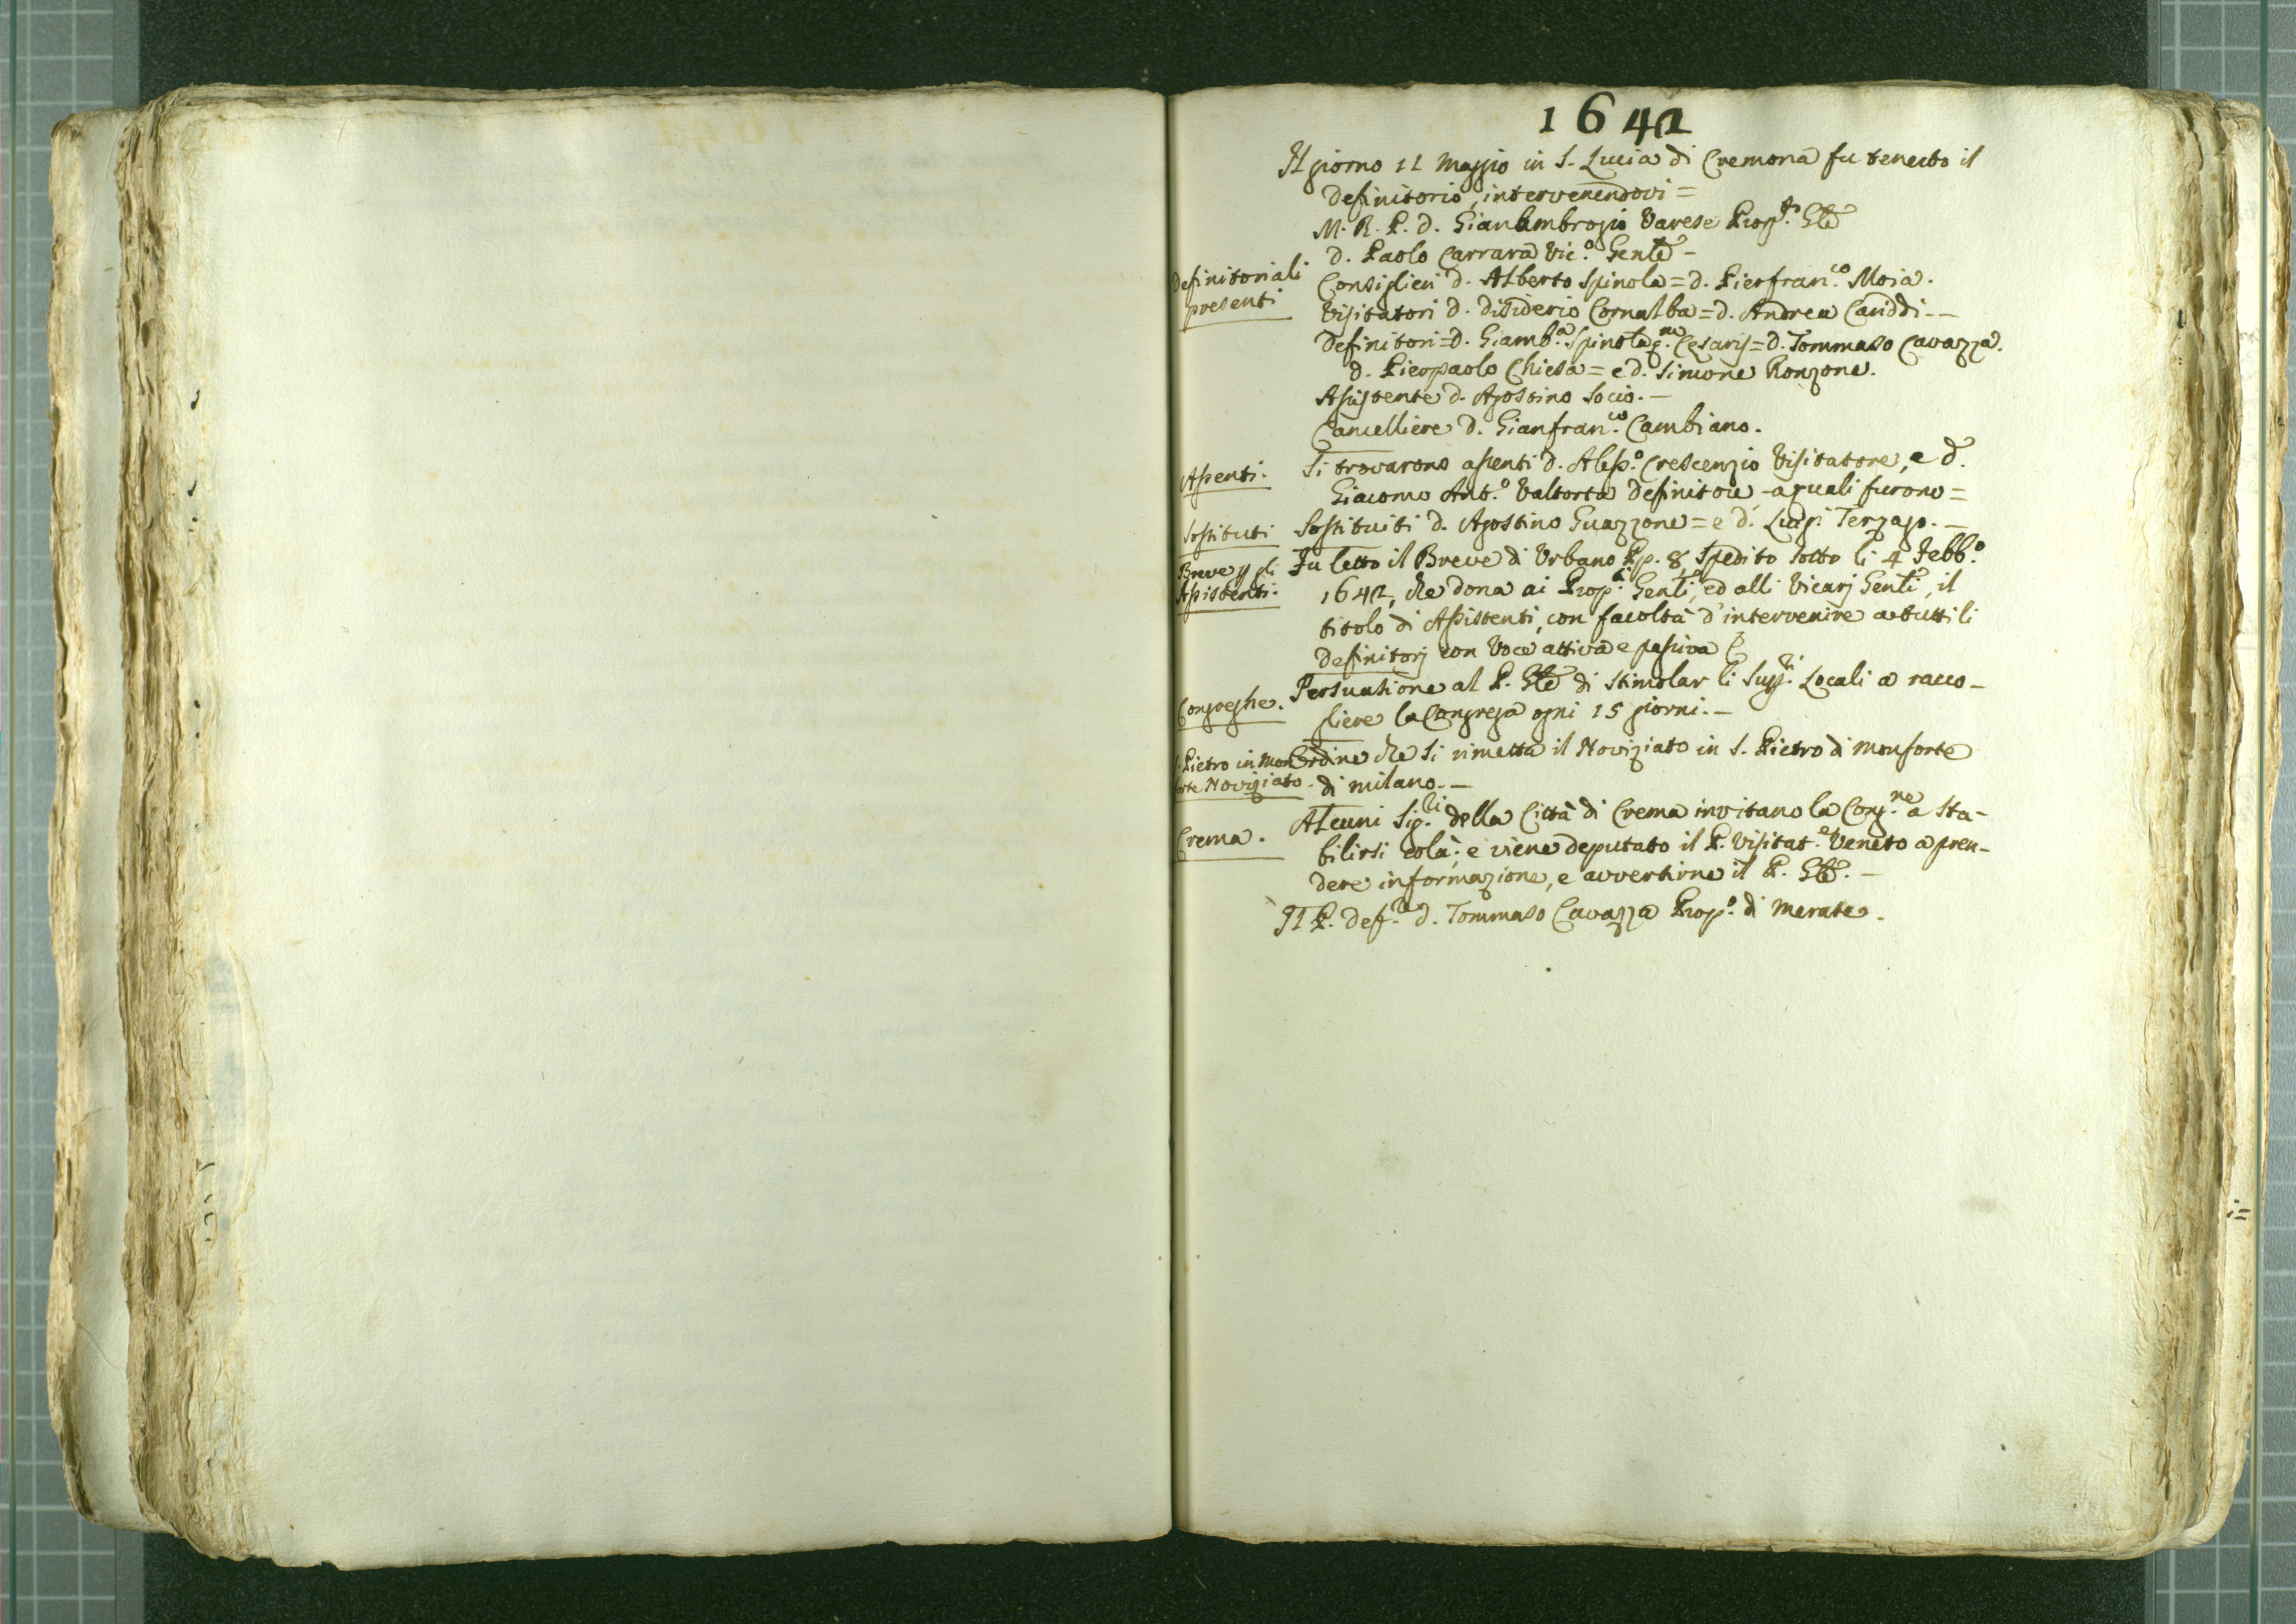 1642
Il giorno 11 Maggio in S. Lucia di Cremona fu tenuto il
Definitorio, intervenendovi =
M. R. P. d. Gianambrogio Varese Prop.to Gle
d. Paolo Carrara Vic.o Genle -
Definitoriali
presenti
Consiglieri d. Alberto Spinola = d. Pierfran.co Moia.
Visitatori d. Disiderio Cornalba = d. Andrea Cariddi -
Definitori = d. Giamb.a Spinola q.m Cesaris = d. Tommaso Cavazza.
d. Pierpaolo Chiesa = e d. Simone Ronzone.
Assistente d. Agostino Socio. -
Cancelliere d. Gianfran.co Cambiano.
Assenti.
Si trovarono assenti d. Aless.o Crescenzio Visitatore, e d.
Giacomo Ant.o Valtorta Definitore - a quali furono =
Sostituti
Sostituiti d. Agostino Guazzone = e d. Luigi Terzago. -
Breve p gli
Assistenti.
Fu letto il Breve di Urbano Pp. 8, Spedito sotto li 4 Febb.o
1642, che dona ai Prop.ti Genli, ed alli Vicarj Genli, il
titolo di Assistenti, con facoltà d'intervenire a tutti li
Definitorj con Voce attiva e passiva
Congreghe.
Persuasione al P. Gle di stimolar li Supp.ri Locali a racco-
gliere la Congrega ogni 15 giorni. -
S. Pietro in Mon
forte Noviziato.
Ordine che si rimetta il Noviziato in S. Pietro di Monforte
di Milano. -
Crema.
Alcuni Sig.ri della Città di Crema invitano la Cong.ne a sta-
bilirsi colà; e viene deputato il P. Visitat.e Veneto a pren-
dere informazione, e avvertirne il P. Gle. -
Il P. Def.re d. Tommaso Cavazza Prop.o di Merate.